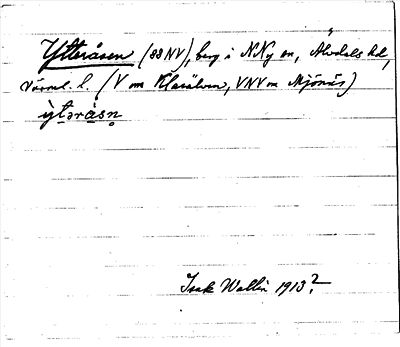 Ytteråsen (88 NV), berg i NNy sn, Älvdals hd,
Värml. l. (V om Klarälven, VNV om Mjönäs)
ỳtəràsn̥
Isak Wallin 1913?